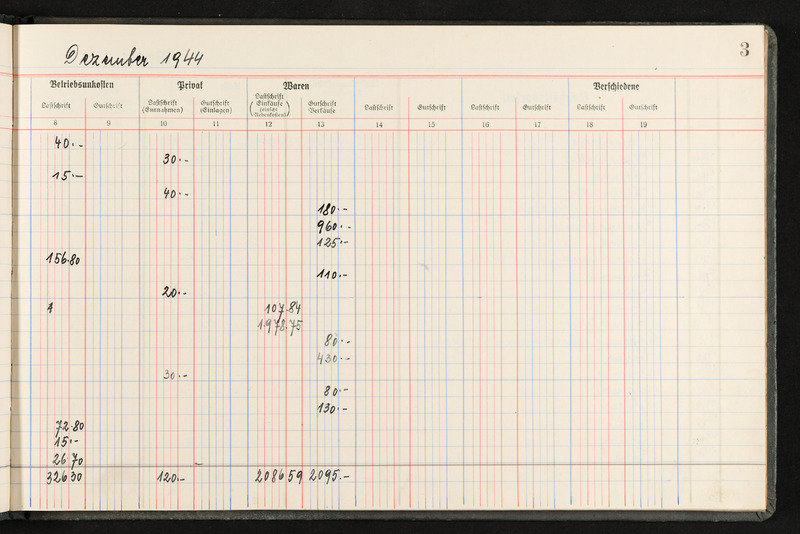 Dezember 1944
3
Betriebsunkosten Privat Waren Verschiedene
Lastschrift Gutschrift Lastschrift (Entnahmen) Gutschrift (Einlagen) Lastschrift (Einkäufe einschl. Nebenkosten) Gutschrift Verkäufe Lastschrift Gutschrift Lastschrift Gutschrift Lastschrift Gutschrift
8 9 10 11 12 13 14 15 16 17 18 19
40.-
30.-
15.-
40.-
180.-
960.-
125.-
156.80
110.-
20.-
107.84
1.978.75
80.-
430.-
30.-
80.-
130.-
72.80
15.-
26 70
326 30 120.- 2086 59 2095.-